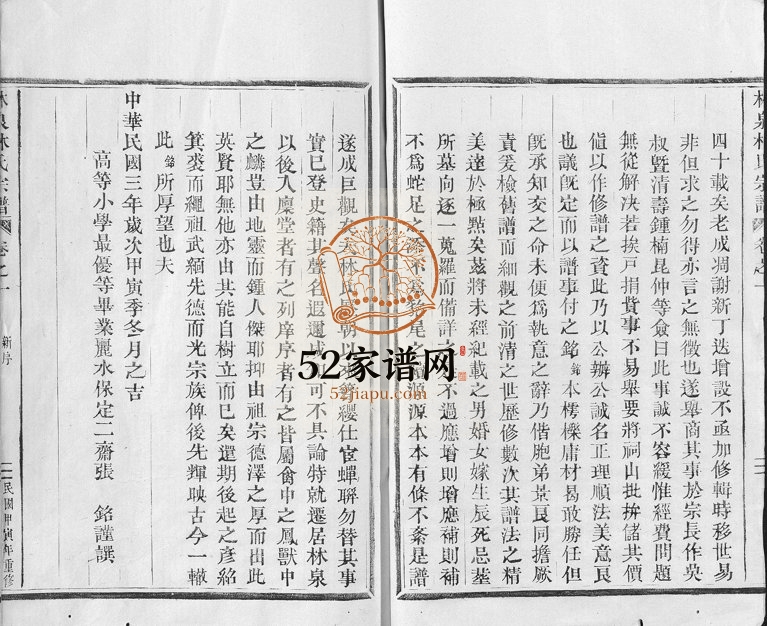 林泉林氏宗譜
卷之一
四十載矣老成凋謝新丁迭增設不亟加修輯時移世易
非但求之勿得亦言之無徵也遂舉商其事於宗長作英
叔暨清壽鍾楠昆仲等僉曰此事誠不容緩惟經費問題
無從解決若挨戶捐貲事不易舉要將祠山批拚儲其價
值以作修譜之資此乃以公辦公誠名正理順法美意良
也議既定而以譜事付之銘銘本樗櫟庸材曷敢勝任但
既承知交之命未便爲執意之辭乃偕胞弟景良同擔厥
責爰檢舊譜而細觀之前清之世歷修數次其譜法之精
美達於極點矣茲將未經紀載之男婚女嫁生辰死忌塋
所墓向逐一蒐羅而備詳之不過應增則增應補則補
不爲蛇足之 源源本本有條不紊是譜
遂成巨觀 林氏 朝以來簪纓仕宦蟬聯勿替其事
實已登史籍其聲名遐邇 可不具論特就遷居林泉
以後入廩堂者有之列庠序者有之皆屬禽中之鳳獸中
之麟豈由地靈而鍾人傑耶抑由祖宗德澤之厚而出此
英賢耶無他亦由其能自樹立而已矣還期後起之彥紹
箕裘而繩祖武緬先德而光宗族俾後先輝映古今一轍
此銘所厚望也夫
中華民國三年歲次甲寅季冬月之吉
高等小學最優等畢業麗水保定二齋張 銘謹譔
林泉林氏宗譜 卷之一 新序 民國甲寅年重修
52家谱网
52jiapu.com